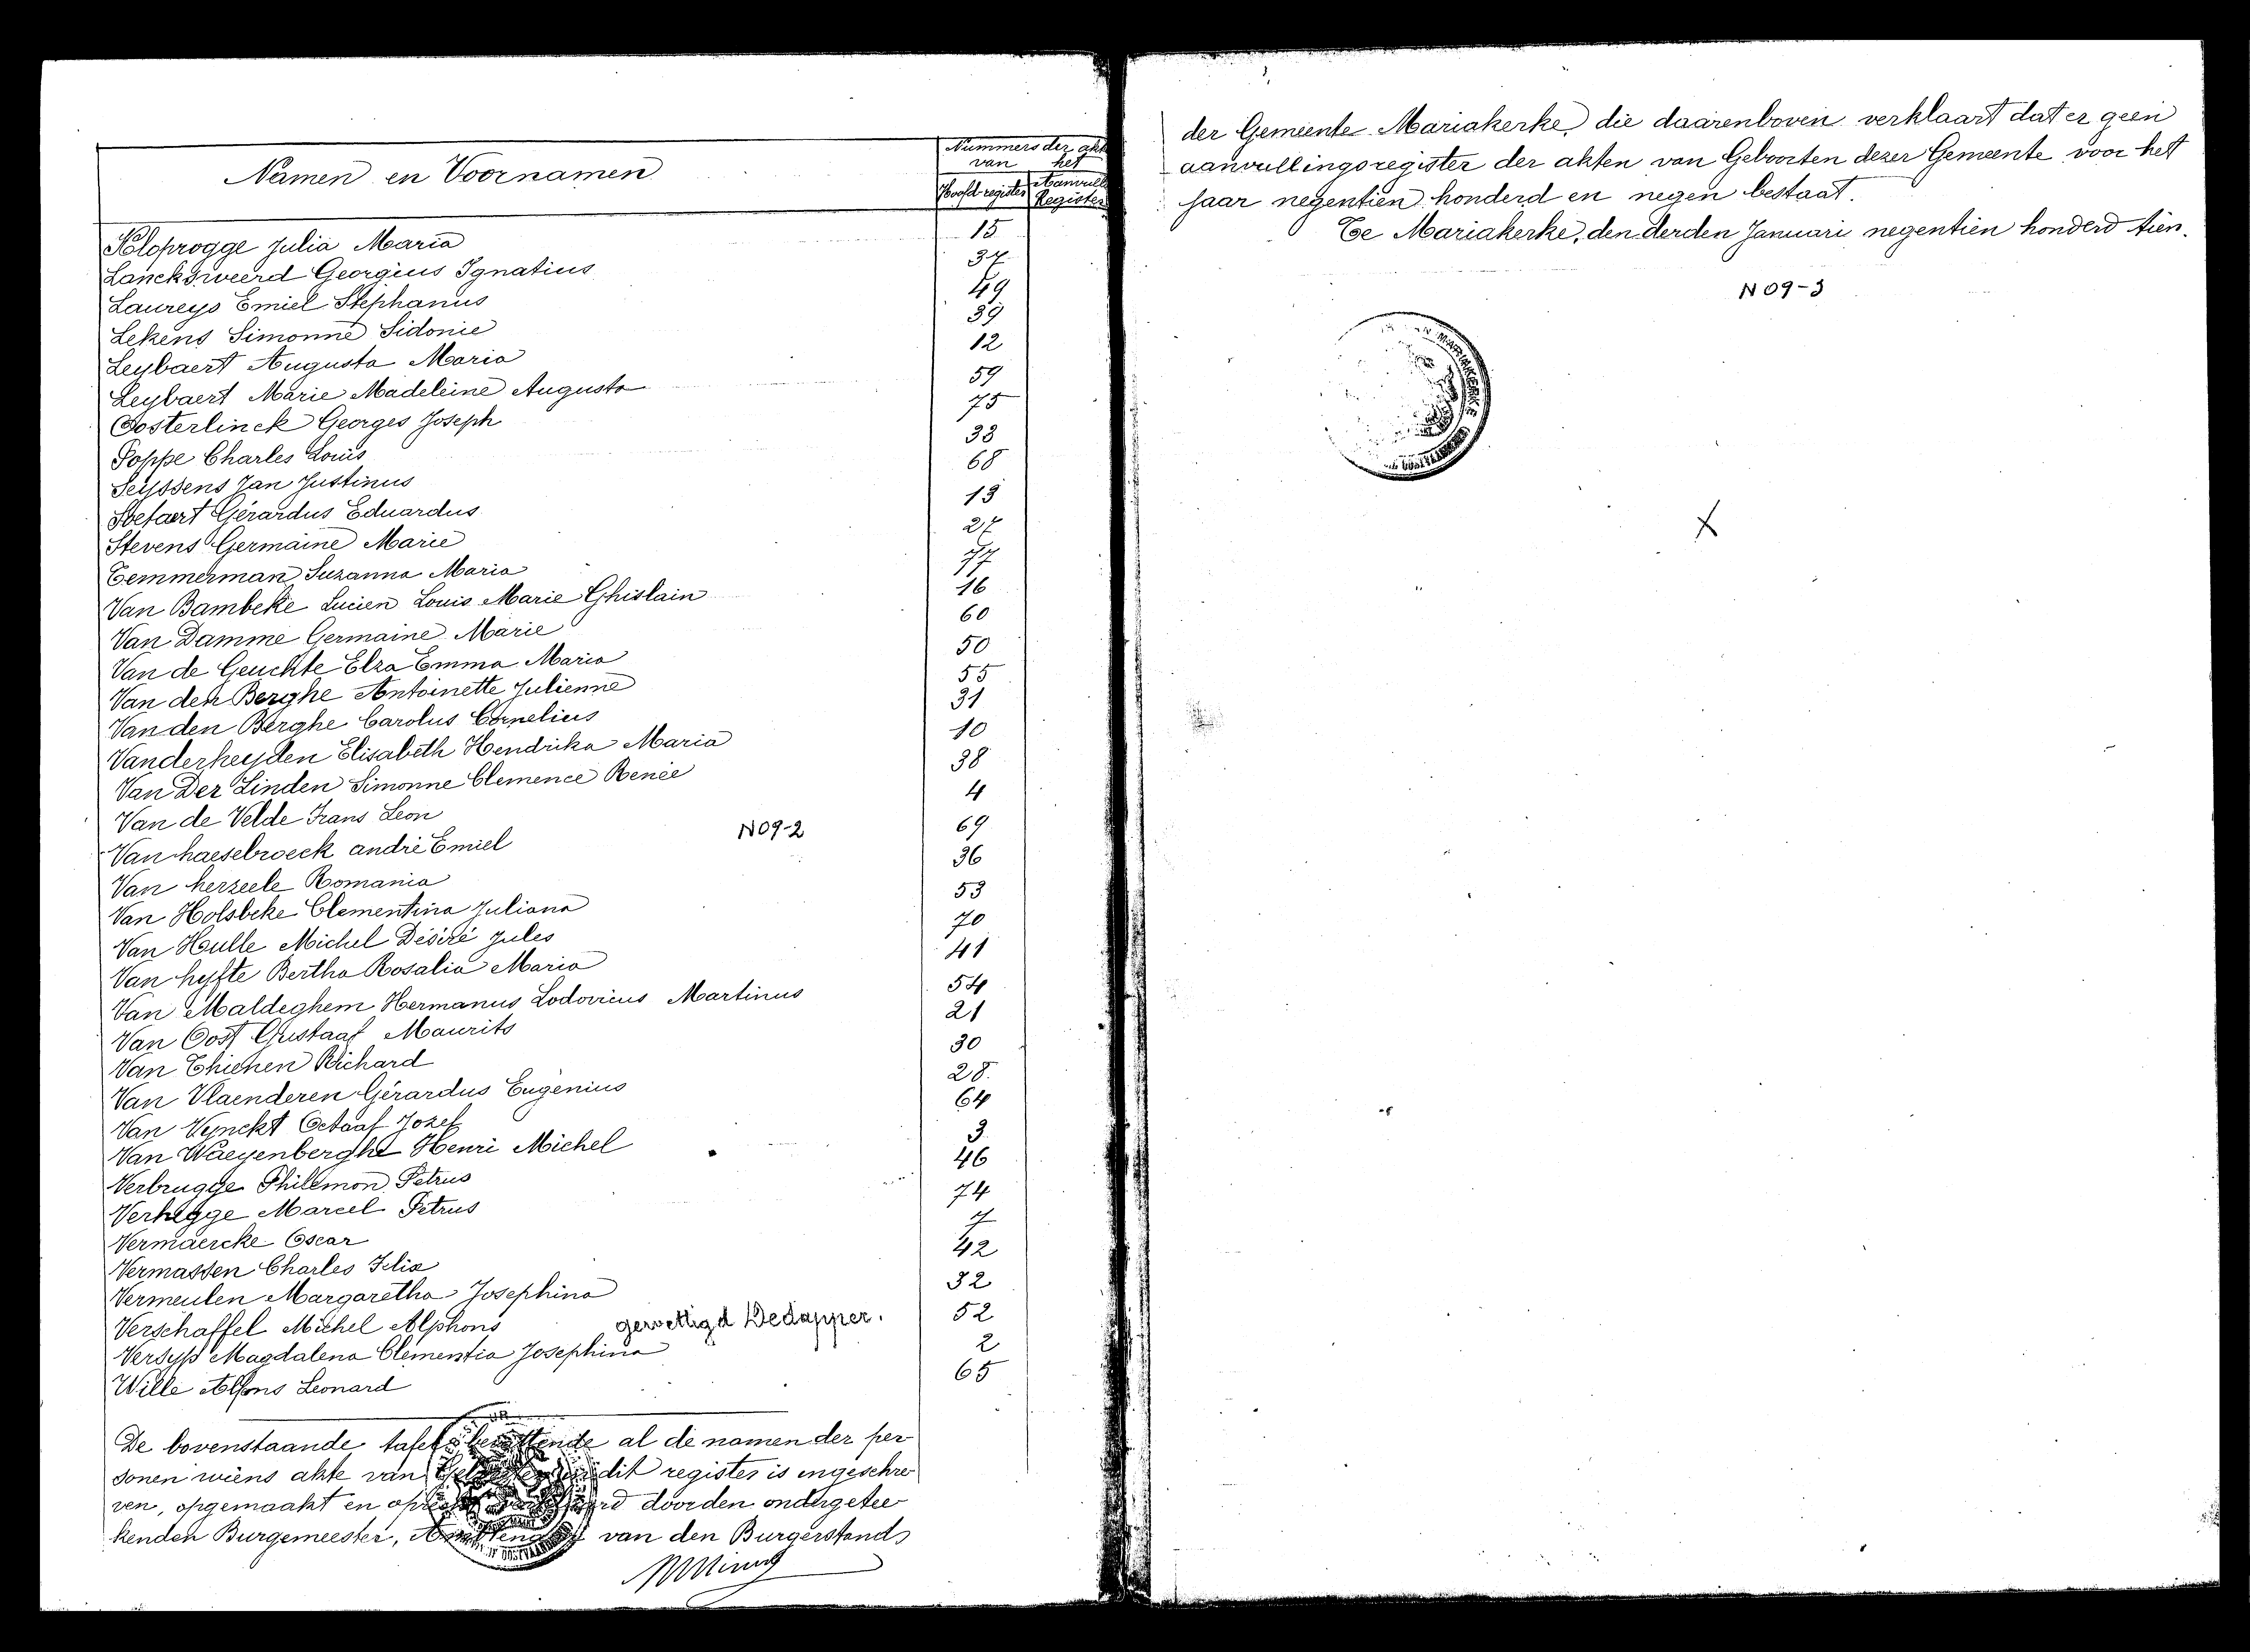 Nummers der akt
van het
Namen en Voornamen
Hoofd-register Aanvull. Register
Kloprogge Julia Maria 15
Lancksweerd Georgius Ignatius 37
Laureys Emiel Stephanus 49
Lekens Simonne Sidonie 39
Leybaert Augusta Maria 12
Leybaert Marie Madeleine Augusta 59
Oosterlinck Georges Joseph 75
Poppe Charles Louis 33
Seyssens Jan Justinus 68
Gérardus Eduardus 13
Stevens Germaine Marie 27
Temmerman Suzanna Maria 77
Van Bambeke Lucien Louis Marie Ghislain 16
Van Damme Germaine Marie 60
Van de Geuchte Elza Emma Maria 50
Van den Berghe Antoinette Julienne 55
Van den Berghe Carolus Cornelius 31
Vanderheyden Elisabeth Hendrika Maria 10
Van Der Linden Simonne Clemence Renée 38
Van de Velde Frans Leon 4
Van haesebroeck andré Emiel 69
N09-2
Van herzeele Romania 36
Van Holsbeke Clementina Juliana 53
Van Hulle Michel Désiré Jules 70
Van hyfte Bertha Rosalia Maria 41
Van Maldeghem Hermanus Lodovicus Martinus 54
Van Oost Gustaaf Maurits 21
Van Thienen Richard 30
Van Vlaenderen Gérardus Eugenius 28
Van Vynckt Octaaf Jozef 64
Van Waeyenberghe Henri Michel 3
Verbrugge Philemon Petrus 46
Verhegge Marcel Petrus 74
Vermaercke Oscar 7
Vermassen Charles Felix 42
Vermeulen Margaretha Josephina 32
Verschaffel Michel Alphons 52
gewettigd Dedapper.
Versyp Magdalena Clementia Josephina 2
Wille Alfons Leonard 65
De bovenstaande tafel bevattende al de namen der per-
sonen wiens akte van Geboorten in dit register is ingeschre-
ven, opgemaakt en oprecht verklaard door den ondergetee-
kenden Burgemeester, Ambtenaar van den Burgerstand
der Gemeente Mariakerke, die daarenboven verklaart dat er geen
aanvullingsregister der akten van Geboorten dezer Gemeente voor het
jaar negentien honderd en negen bestaat.
Te Mariakerke, den derden Januari negentien honderd tien.
N09-3
X